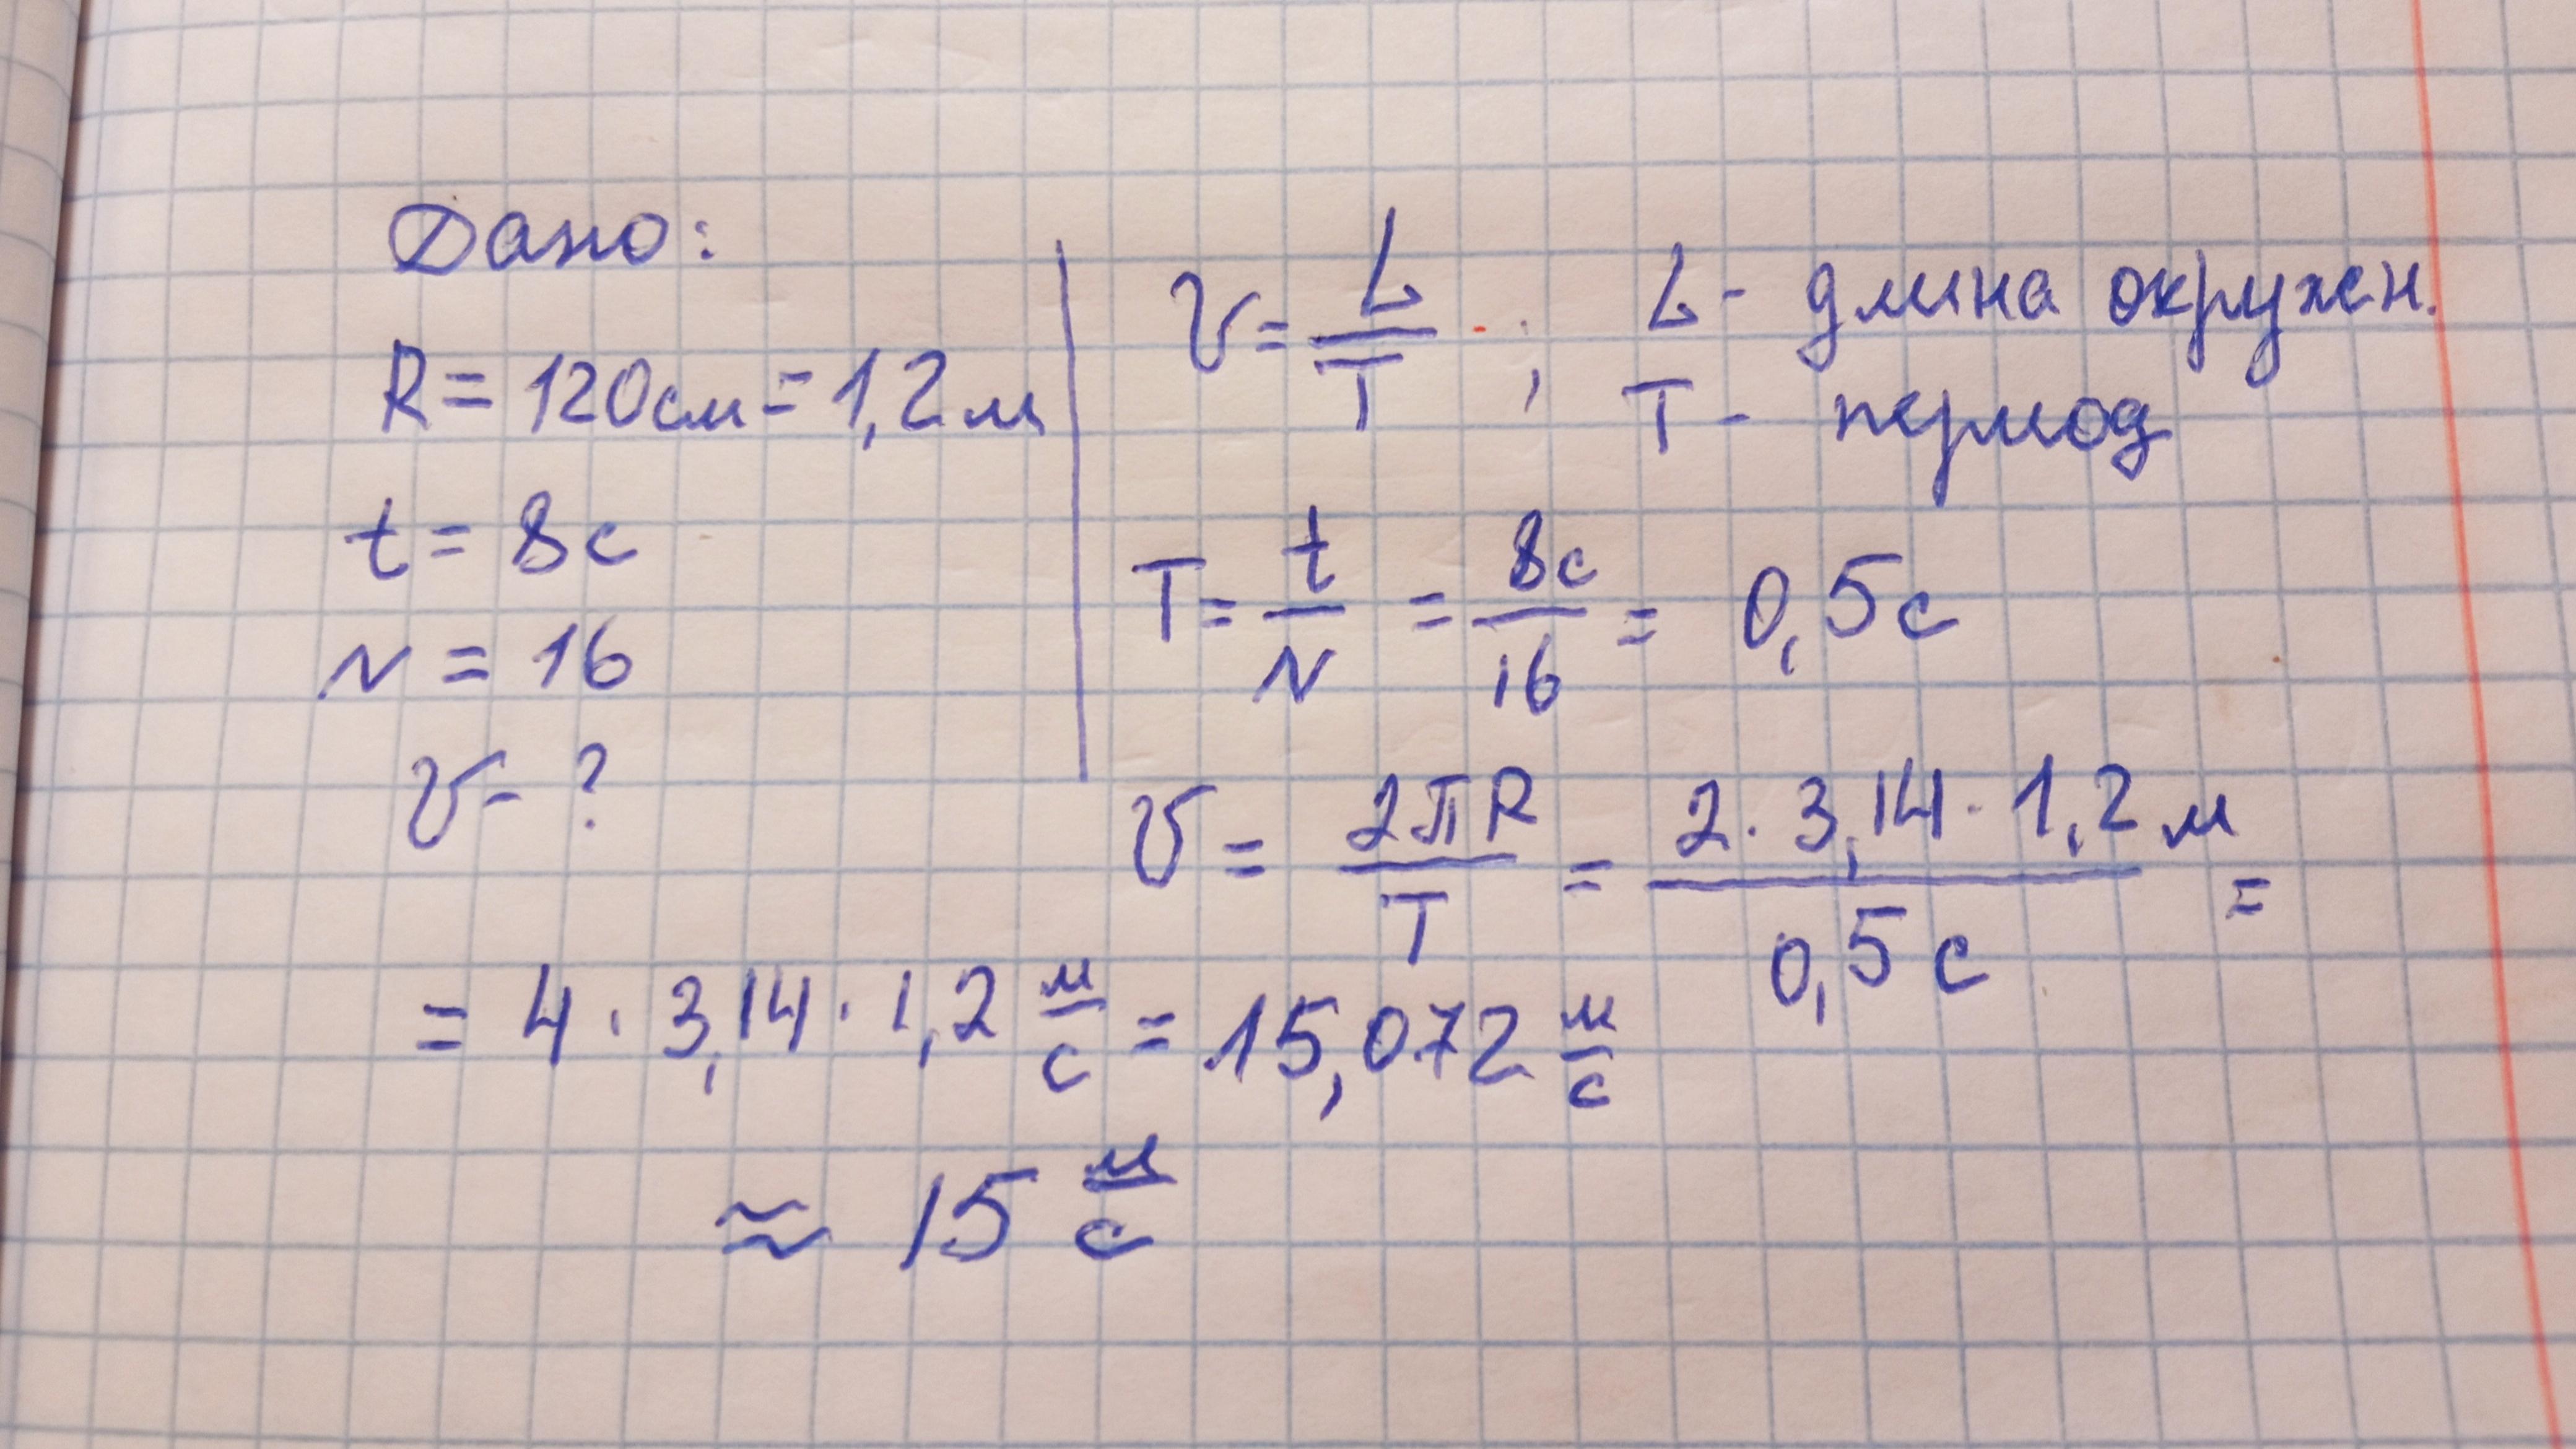 Дано:
R = 120см = 1,2м
t = 8с
N = 16
v - ?
v = L/T ; L - длина окружен.
T - период
T = t/N = 8с/16 = 0,5с
v = 2πR/T = 2 · 3,14 · 1,2 м/0,5 с =
= 4 · 3,14 · 1,2 м/с = 15,072 м/с
≈ 15 м/с